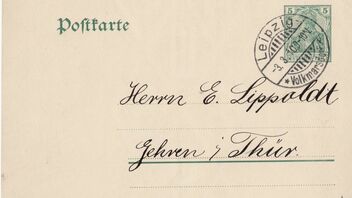 Postkarte
5 5
Leipzig
* Volkmarsdorf
Herrn E. Lippoldt
Gehren i/Thür.